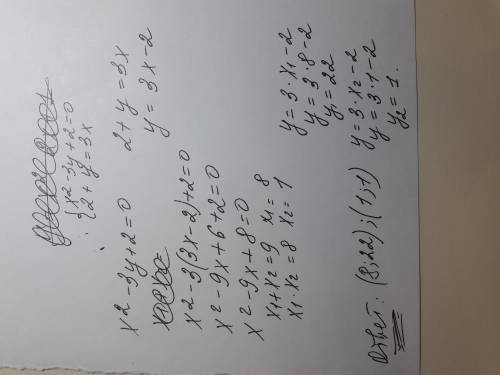 {x² - 3y + 2 = 0
{2 + y = 3x
x² - 3y + 2 = 0    2 + y = 3x
y = 3x - 2
x² - 3(3x - 2) + 2 = 0
x² - 9x + 6 + 2 = 0
x² - 9x + 8 = 0
x₁ + x₂ = 9    x₁ = 8
x₁ · x₂ = 8    x₂ = 1
y = 3 · x₁ - 2
y = 3 · 8 - 2
y₁ = 22
y = 3 · x₂ - 2
y = 3 · 1 - 2
y₂ = 1.
Ответ: (8; 22); (1; 1)